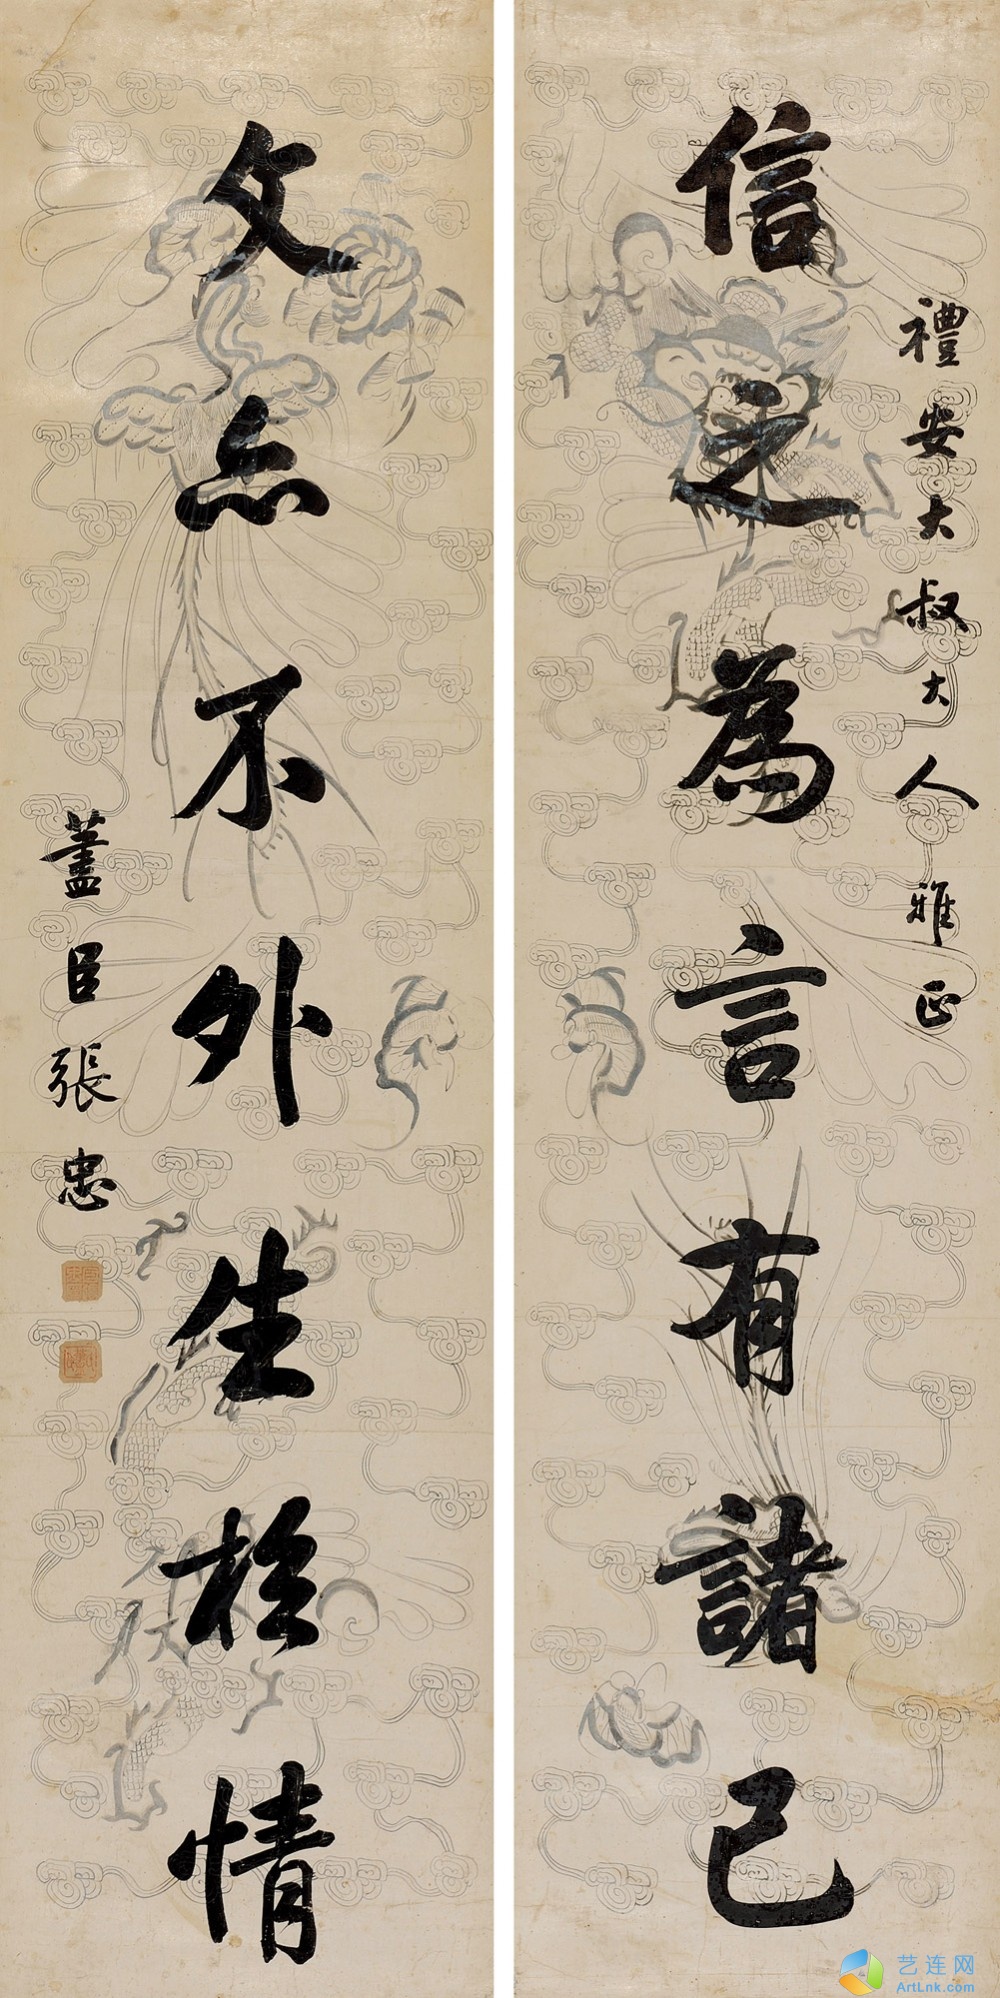 禮安大叔大人雅正
信之為言有諸己
文亦不外生於情
藎臣張忠
艺连网
ArtLnk.com